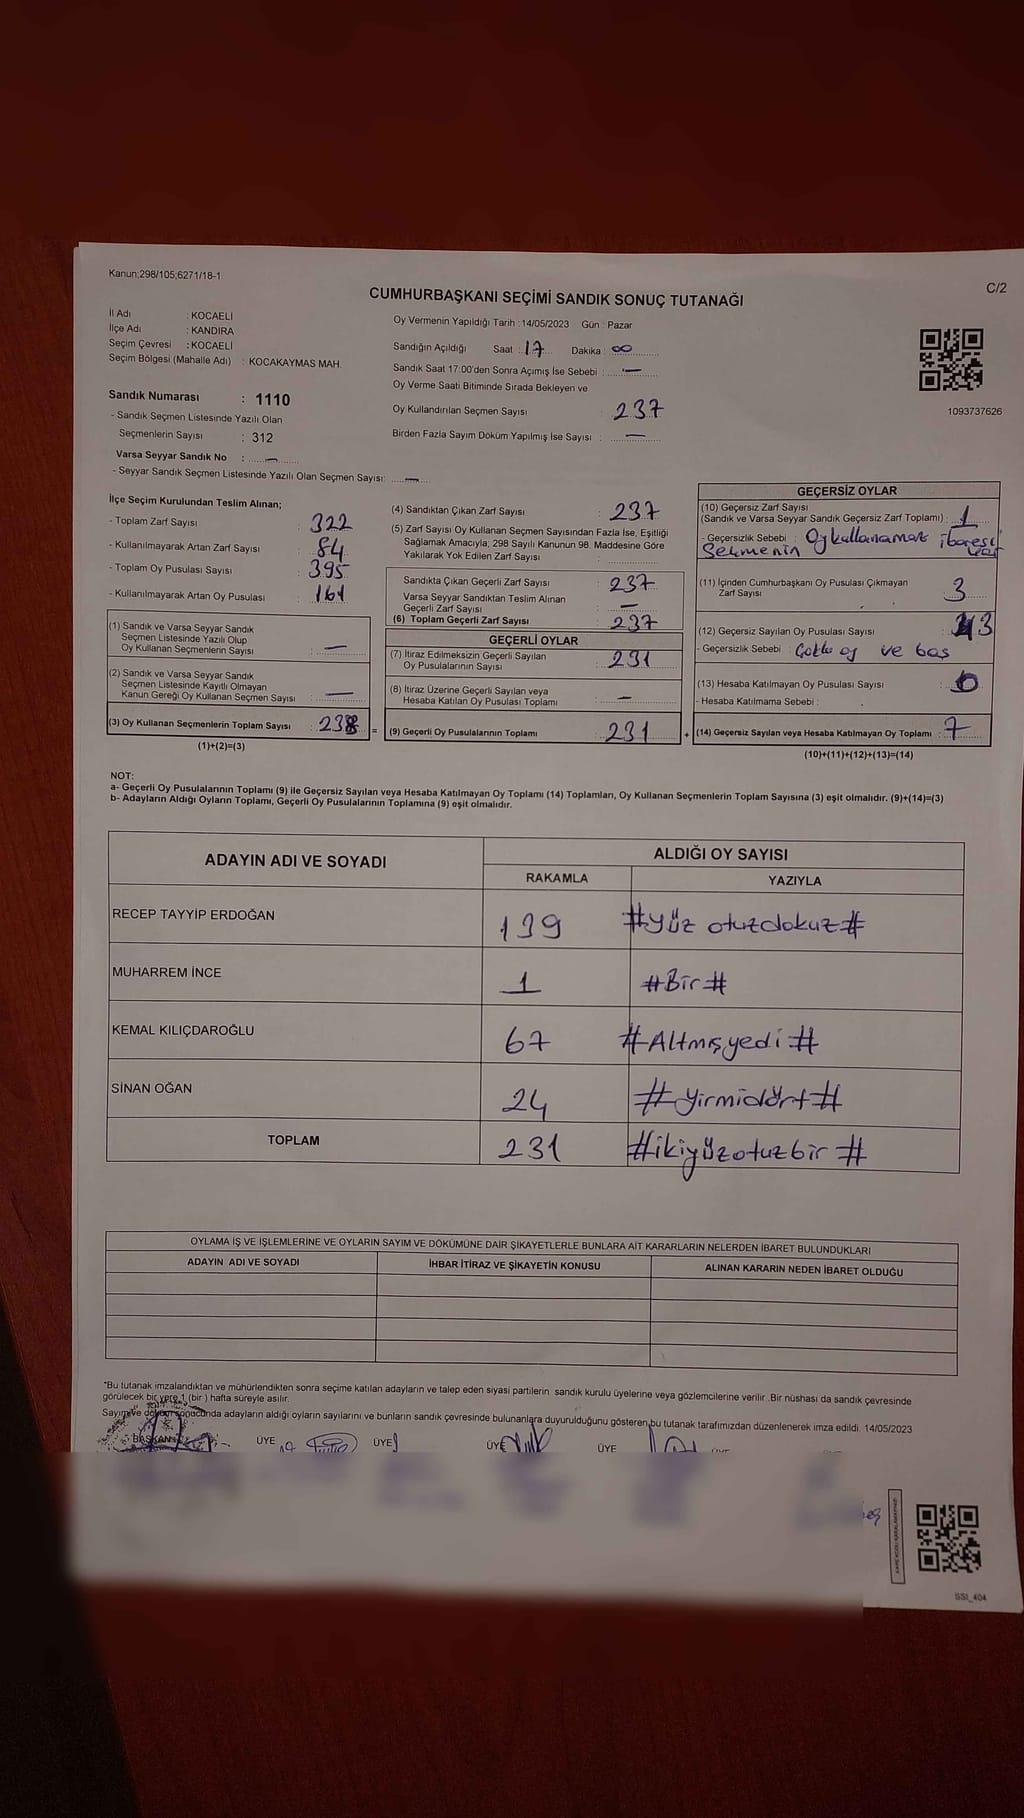 Kanun;298/105;6271/18-1
C/2
CUMHURBAŞKANI SEÇİMİ SANDIK SONUÇ TUTANAĞI
İl Adı : KOCAELİ
İlçe Adı : KANDIRA
Seçim Çevresi : KOCAELİ
Seçim Bölgesi (Mahalle Adı) : KOCAKAYMAS MAH.
Sandık Numarası : 1110
- Sandık Seçmen Listesinde Yazılı Olan
Seçmenlerin Sayısı : 312
Varsa Seyyar Sandık No : —
- Seyyar Sandık Seçmen Listesinde Yazılı Olan Seçmen Sayısı: —
Oy Vermenin Yapıldığı Tarih : 14/05/2023 Gün : Pazar
Sandığın Açıldığı Saat : 17 Dakika : 00
Sandık Saat 17:00'den Sonra Açımış İse Sebebi : —
Oy Verme Saati Bitiminde Sırada Bekleyen ve
Oy Kullandırılan Seçmen Sayısı : 237
Birden Fazla Sayım Döküm Yapılmış İse Sayısı : —
1093737626
İlçe Seçim Kurulundan Teslim Alınan;
- Toplam Zarf Sayısı : 322
- Kullanılmayarak Artan Zarf Sayısı : 84
- Toplam Oy Pusulası Sayısı : 395
- Kullanılmayarak Artan Oy Pusulası : 161
(1) Sandık ve Varsa Seyyar Sandık
Seçmen Listesinde Yazılı Olup
Oy Kullanan Seçmenlerin Sayısı : —
(2) Sandık ve Varsa Seyyar Sandık
Seçmen Listesinde Kayıtlı Olmayan
Kanun Gereği Oy Kullanan Seçmen Sayısı : —
(3) Oy Kullanan Seçmenlerin Toplam Sayısı : 238 =
(1)+(2)=(3)
(4) Sandıktan Çıkan Zarf Sayısı : 237
(5) Zarf Sayısı Oy Kullanan Seçmen Sayısından Fazla İse, Eşitliği
Sağlamak Amacıyla; 298 Sayılı Kanunun 98. Maddesine Göre
Yakılarak Yok Edilen Zarf Sayısı :
Sandıkta Çıkan Geçerli Zarf Sayısı : 237
Varsa Seyyar Sandıktan Teslim Alınan
Geçerli Zarf Sayısı : —
(6) Toplam Geçerli Zarf Sayısı : 237
GEÇERLİ OYLAR
(7) İtiraz Edilmeksizin Geçerli Sayılan
Oy Pusulalarının Sayısı : 231
(8) İtiraz Üzerine Geçerli Sayılan veya
Hesaba Katılan Oy Pusulası Toplamı : —
(9) Geçerli Oy Pusulalarının Toplamı : 231 +
GEÇERSİZ OYLAR
(10) Geçersiz Zarf Sayısı
(Sandık ve Varsa Seyyar Sandık Geçersiz Zarf Toplamı) : 1
- Geçersizlik Sebebi : Oy kullanamaz ibaresi
Seçmenin var
(11) İçinden Cumhurbaşkanı Oy Pusulası Çıkmayan
Zarf Sayısı : 3
(12) Geçersiz Sayılan Oy Pusulası Sayısı : 3
- Geçersizlik Sebebi : Çoklu oy ve boş
(13) Hesaba Katılmayan Oy Pusulası Sayısı : 0
- Hesaba Katılmama Sebebi :
(14) Geçersiz Sayılan veya Hesaba Katılmayan Oy Toplamı : 7
(10)+(11)+(12)+(13)=(14)
NOT:
a- Geçerli Oy Pusulalarının Toplamı (9) ile Geçersiz Sayılan veya Hesaba Katılmayan Oy Toplamı (14) Toplamları, Oy Kullanan Seçmenlerin Toplam Sayısına (3) eşit olmalıdır. (9)+(14)=(3)
b- Adayların Aldığı Oyların Toplamı, Geçerli Oy Pusulalarının Toplamına (9) eşit olmalıdır.
ADAYIN ADI VE SOYADI
ALDIĞI OY SAYISI
RAKAMLA YAZIYLA
RECEP TAYYİP ERDOĞAN 139 #Yüz otuzdokuz#
MUHARREM İNCE 1 #Bir#
KEMAL KILIÇDAROĞLU 67 #Altmışyedi#
SİNAN OĞAN 24 #yirmidört#
TOPLAM 231 #ikiyüzotuzbir#
OYLAMA İŞ VE İŞLEMLERİNE VE OYLARIN SAYIM VE DÖKÜMÜNE DAİR ŞİKAYETLERLE BUNLARA AİT KARARLARIN NELERDEN İBARET BULUNDUKLARI
ADAYIN ADI VE SOYADI İHBAR İTİRAZ VE ŞİKAYETİN KONUSU ALINAN KARARIN NEDEN İBARET OLDUĞU
*Bu tutanak imzalandıktan ve mühürlendikten sonra seçime katılan adayların ve talep eden siyasi partilerin sandık kurulu üyelerine veya gözlemcilerine verilir. Bir nüshası da sandık çevresinde
görülecek bir yere 1 (bir) hafta süreyle asılır.
Sayım ve döküm sonucunda adayların aldığı oyların sayılarını ve bunların sandık çevresinde bulunanlara duyurulduğunu gösteren bu tutanak tarafımızdan düzenlenerek imza edildi. 14/05/2023
BAŞKAN ÜYE ÜYE ÜYE ÜYE ÜYE
SSI_404